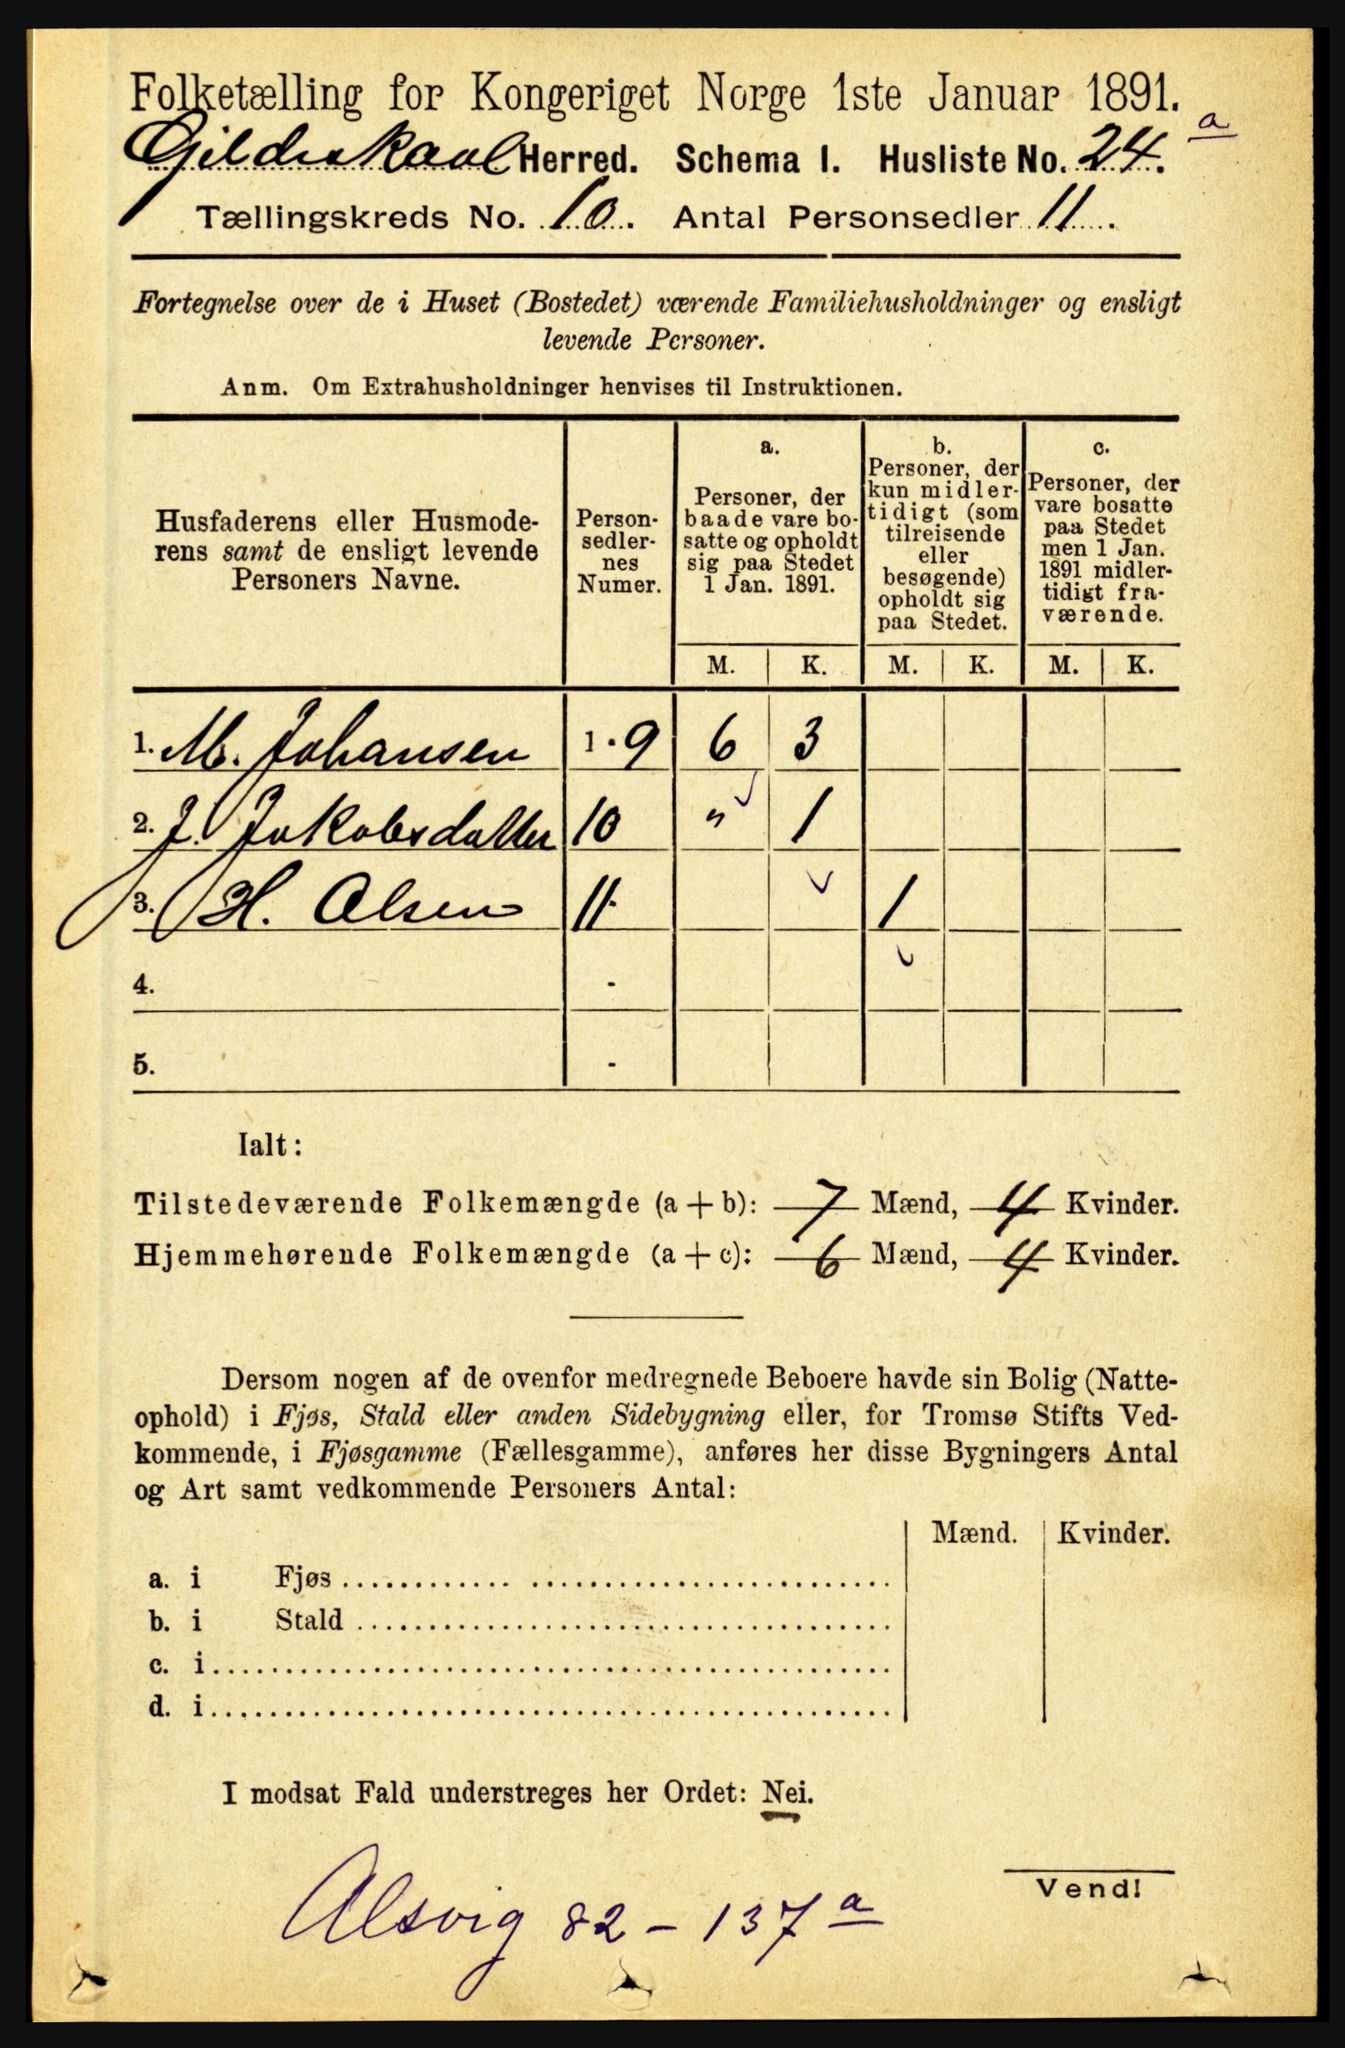 Folketælling for Kongeriget Norge 1ste Januar 1891.
Gildeskaal Herred. Schema I. Husliste No. 24. a
Tællingskreds No. 10. Antal Personsedler 11.
Fortegnelse over de i Huset (Bostedet) værende Familiehusholdninger og ensligt
levende Personer.
Anm. Om Extrahusholdninger henvises til Instruktionen.
Husfaderens eller Husmode-
rens samt de ensligt levende
Personers Navne.
Person-
sedler-
nes
Numer.
a.
Personer, der
baade vare bo-
satte og opholdt
sig paa Stedet
1 Jan. 1891.
b.
Personer, der
kun midler-
tidigt (som
tilreisende
eller
besøgende)
opholdt sig
paa Stedet.
c.
Personer, der
vare bosatte
paa Stedet
men 1 Jan.
1891 midler-
tidigt fra-
værende.
M. K. M. K. M. K.
1. M. Johansen 1 - 9 6 3
2. J. Jakobsdatter 10 " 1
3. H. Olsen 11 1
4. -
5. -
Ialt:
Tilstedeværende Folkemængde (a + b): 7 Mænd, 4 Kvinder.
Hjemmehørende Folkemængde (a + c): 6 Mænd, 4 Kvinder.
Dersom nogen af de ovenfor medregnede Beboere havde sin Bolig (Natte-
ophold) i Fjøs, Stald eller anden Sidebygning eller, for Tromsø Stifts Ved-
kommende, i Fjøsgamme (Fællesgamme), anføres her disse Bygningers Antal
og Art samt vedkommende Personers Antal:
Mænd. Kvinder.
a. i Fjøs
b. i Stald
c. i
d. i
I modsat Fald understreges her Ordet: Nei.
Vend!
Alsvig 82 - 137 a